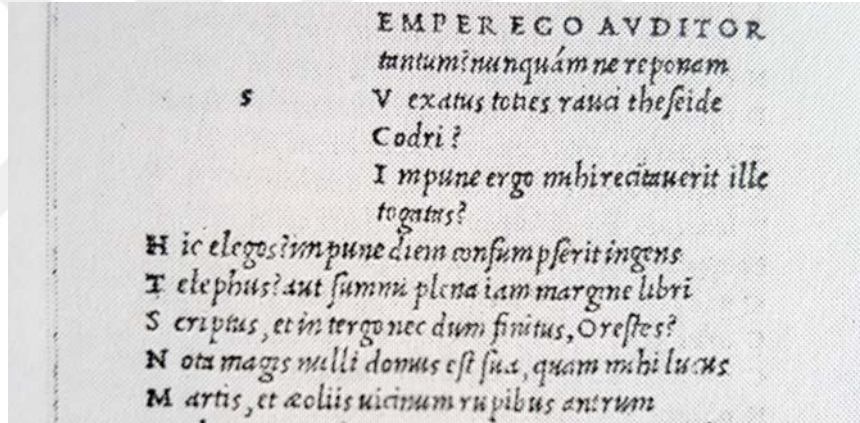 EMPER EGO AVDITOR
tantum? nunquám ne reponam
S V exatus toties rauci theseide
Codri?
I mpune ergo mihi recitauerit ille
togatus?
H ic elegos? impune diem consumpserit ingens
T elephus? aut summi plena iam margine libri
S criptus, et in tergo nec dum finitus, Orestes?
N ota magis nulli domus est sua, quam mihi lucus
M artis, et æoliis uicinum rupibus antrum